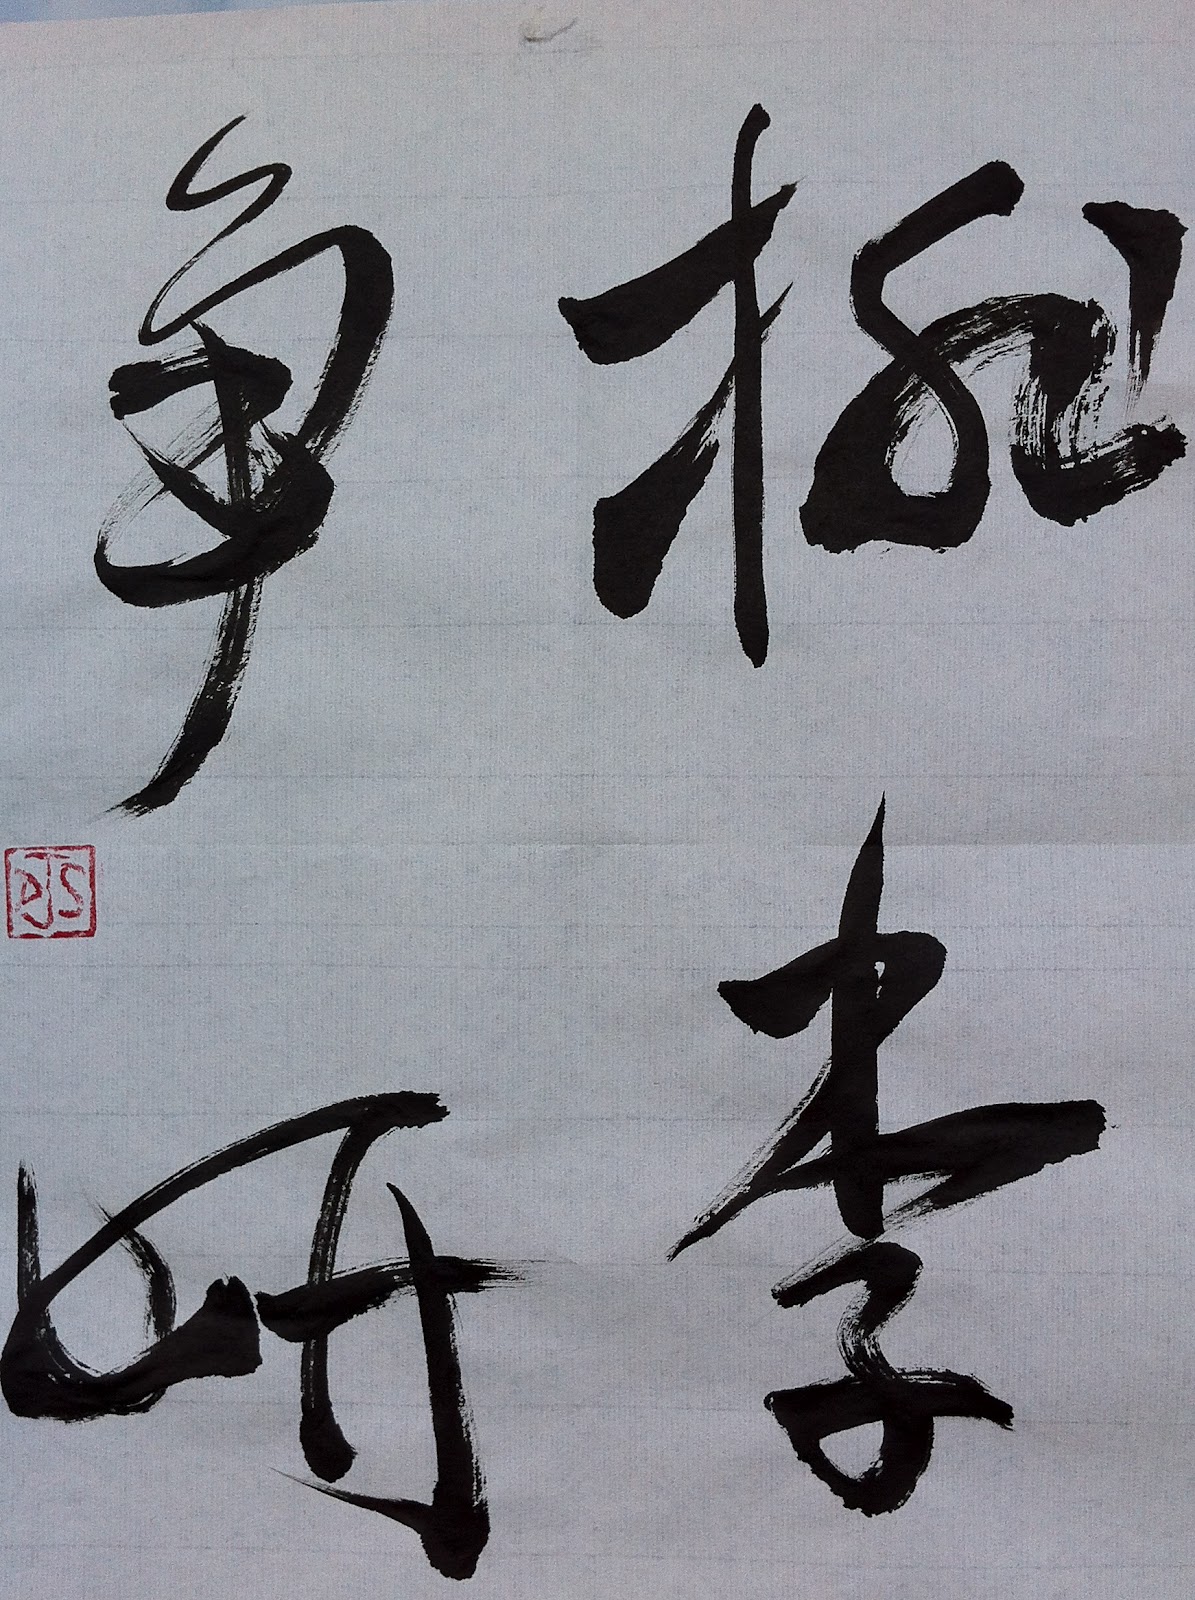 桃李
争妍
DJS